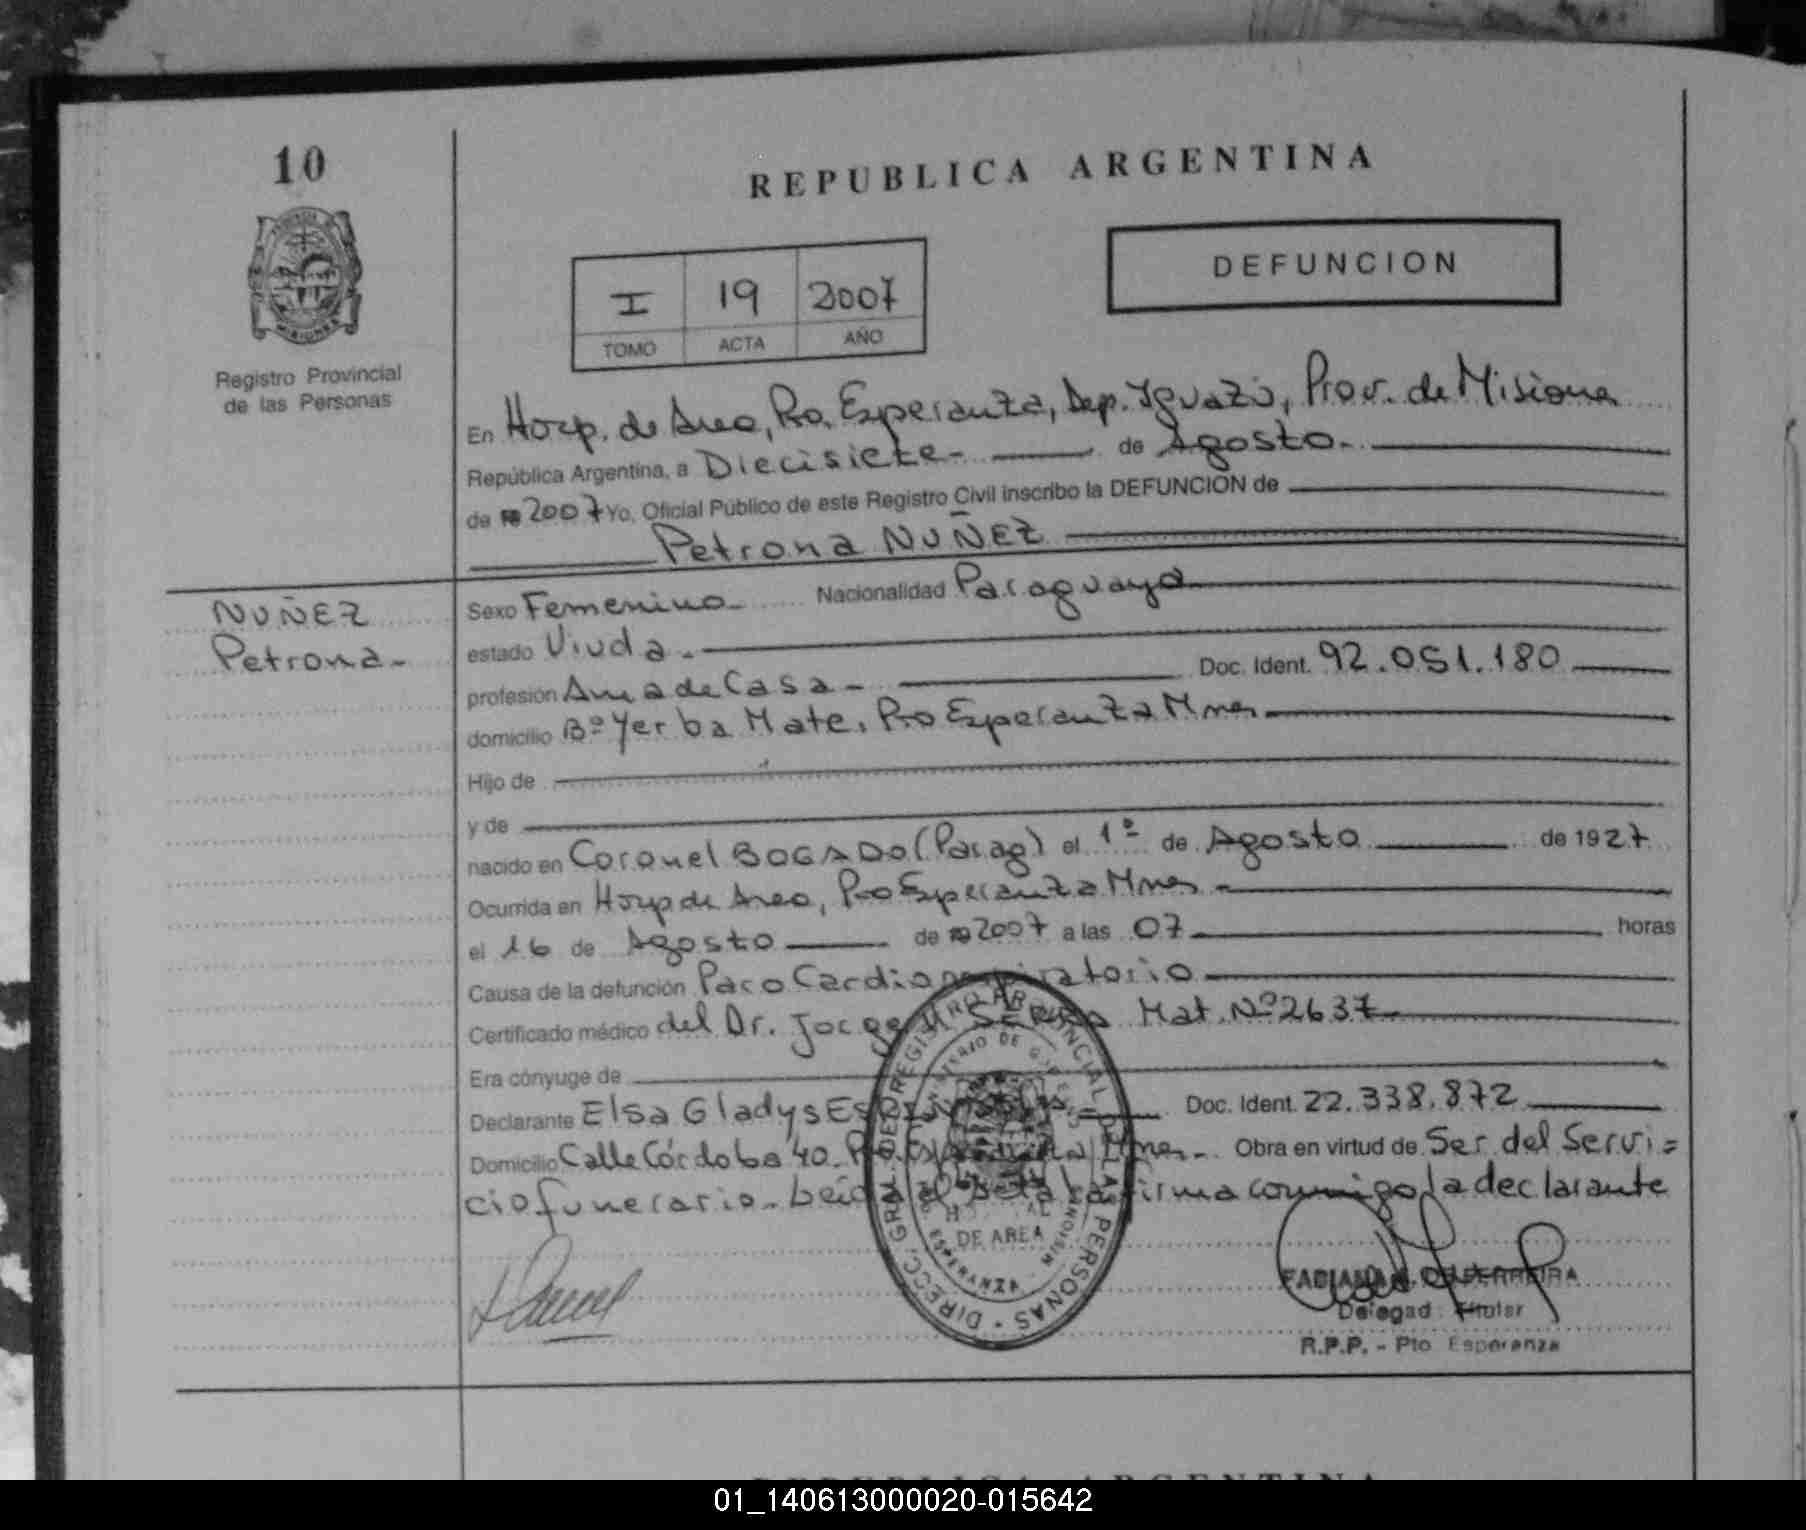 10
REPUBLICA ARGENTINA
MISIONES
Registro Provincial
de las Personas
I 19 2007
TOMO ACTA AÑO
DEFUNCION
En Hosp. de Area, Pto. Esperanza, Dep. Iguazú, Prov. de Misiones
República Argentina, a Diecisiete - de Agosto.
de 2007 Yo, Oficial Público de este Registro Civil inscribo la DEFUNCION de
Petrona NUÑEZ
NUÑEZ
Petrona-
Sexo Femenino Nacionalidad Paraguaya
estado Viuda.
profesión Ama de Casa - Doc. Ident. 92.051.180
domicilio Bº Yerba Mate, Pto Esperanza Mnes
Hijo de
y de
nacido en Coronel BOGADO (Parag) el 1º de Agosto de 1927
Ocurrida en Hosp de Area, Pto Esperanza Mnes -
el 16 de Agosto de 2007 a las 07 horas
Causa de la defunción Paro Cardiorespiratorio
Certificado médico del Dr. Jorge Mat. Nº 2637
Era cónyuge de
Declarante Elsa Gladys Doc. Ident. 22.338.872
Domicilio Calle Córdoba 40. Pto Esperanza Mnes. Obra en virtud de Ser del Servi=
cio funerario. Leída el acta la firma conmigo la declarante
DIRECC. GRAL. DEL REGISTRO PROVINCIAL DE LAS PERSONAS
MINISTERIO DE
HOSPITAL
DE AREA
ESPERANZA - MISIONES
FABIANA DE FERREIRA
Delegad Titular
R.P.P. - Pto Esperanza
REPUBLICA ARGENTINA
01_140613000020-015642